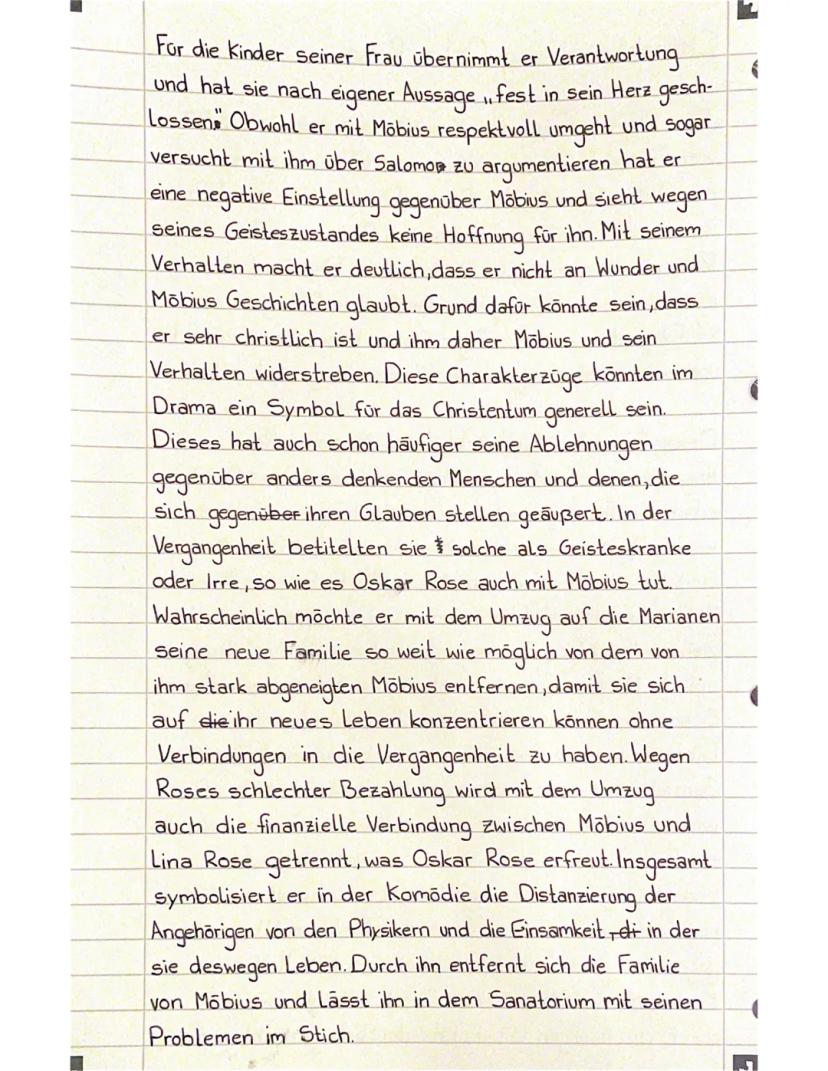 Für die Kinder seiner Frau übernimmt er Verantwortung
und hat sie nach eigener Aussage „fest in sein Herz gesch-
lossen." Obwohl er mit Möbius respektvoll umgeht und sogar
versucht mit ihm über Salomo zu argumentieren hat er
eine negative Einstellung gegenüber Möbius und sieht wegen
seines Geisteszustandes keine Hoffnung für ihn. Mit seinem
Verhalten macht er deutlich, dass er nicht an Wunder und
Möbius Geschichten glaubt. Grund dafür könnte sein, dass
er sehr christlich ist und ihm daher Möbius und sein
Verhalten widerstreben. Diese Charakterzüge könnten im
Drama ein Symbol für das Christentum generell sein.
Dieses hat auch schon häufiger seine Ablehnungen
gegenüber anders denkenden Menschen und denen, die
sich gegenüber ihren Glauben stellen geäußert. In der
Vergangenheit betitelten sie solche als Geisteskranke
oder Irre, so wie es Oskar Rose auch mit Möbius tut.
Wahrscheinlich möchte er mit dem Umzug auf die Marianen
seine neue Familie so weit wie möglich von dem von
ihm stark abgeneigten Möbius entfernen, damit sie sich
auf die ihr neues Leben konzentrieren können ohne
Verbindungen in die Vergangenheit zu haben. Wegen
Roses schlechter Bezahlung wird mit dem Umzug
auch die finanzielle Verbindung zwischen Möbius und
Lina Rose getrennt, was Oskar Rose erfreut. Insgesamt
symbolisiert er in der Komödie die Distanzierung der
Angehörigen von den Physikern und die Einsamkeit, di in der
sie deswegen Leben. Durch ihn entfernt sich die Familie
von Möbius und Lässt ihn in dem Sanatorium mit seinen
Problemen im Stich.